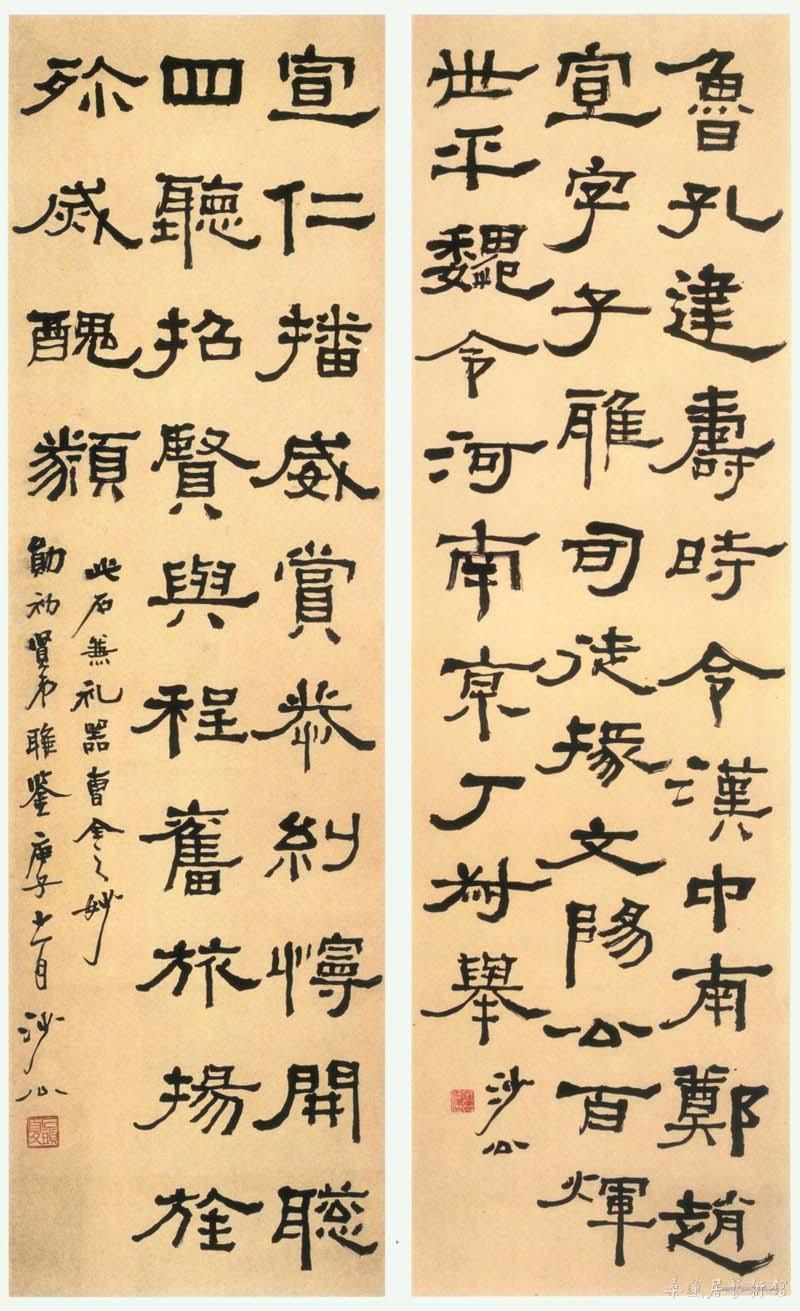 魯孔建壽時令漢中南鄭趙
宣字子雅司徒掾文陽公百輝
世平魏令河南京丁叔舉
沙公
宣仁播威賞恭糾慢開聰
四聽招賢與程舊旅揚旌
殄烕醜類
此石兼礼器曹全之妙
勛初賢弟雅鑒庚子十一月沙公